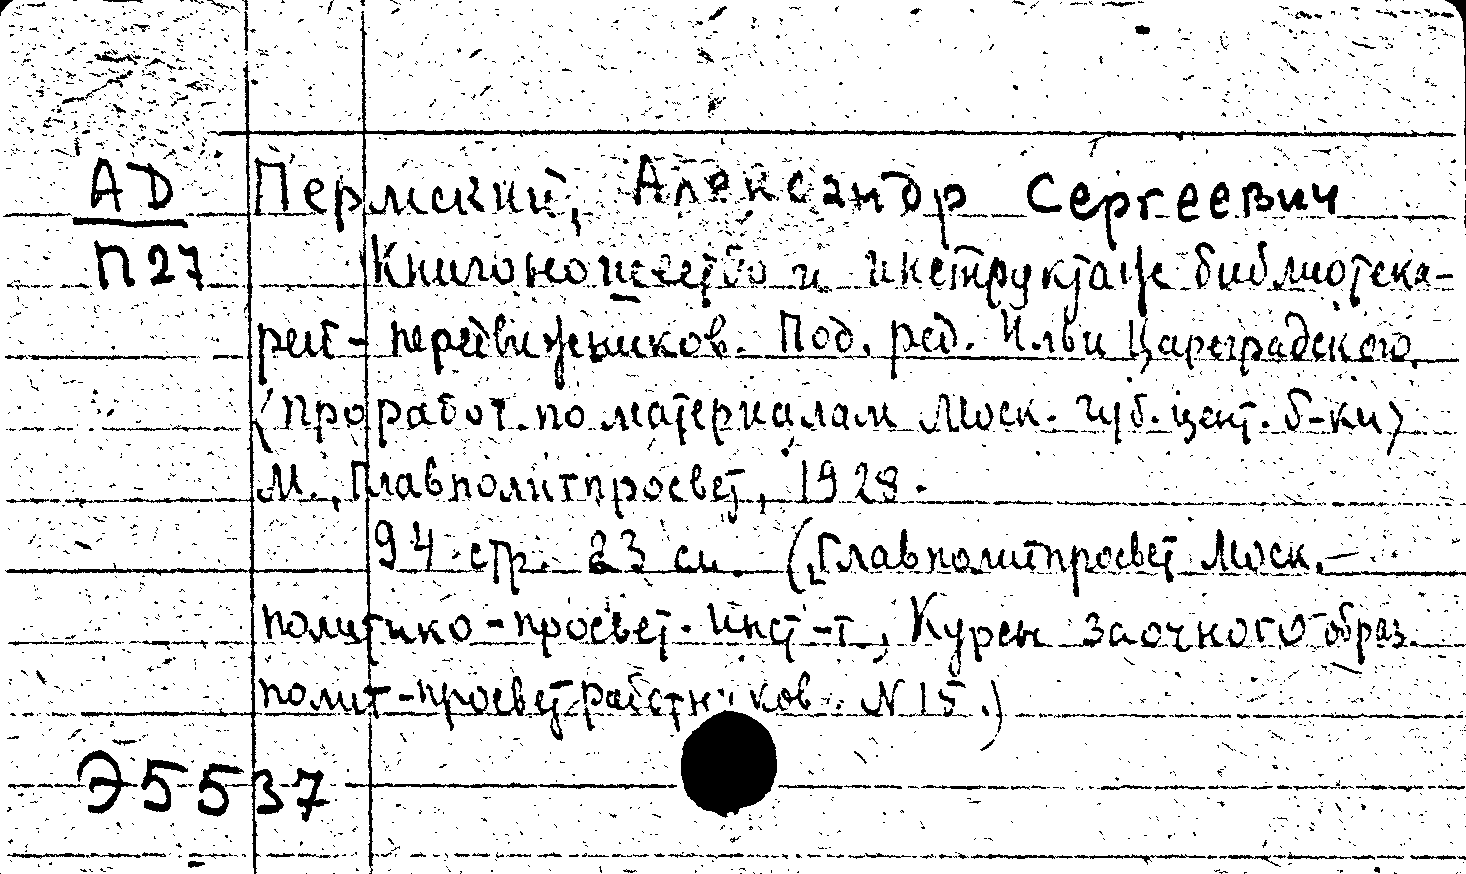 АД Пермский, Александр Сергеевич
П27 Книгоношество и инструктаж библиотека-
рей-передвижников. Под. ред. Ильи Цареградского.
(Проработ. по материалам Моск. губ. цент. б-ки)
М., Главполитпросвет, 1928.
94 стр. 23 см. (Главполитпросвет Моск.
политико-просвет. инст-т, Курсы заочного образ.
полит-просвет работников. N 15.)
Э5537